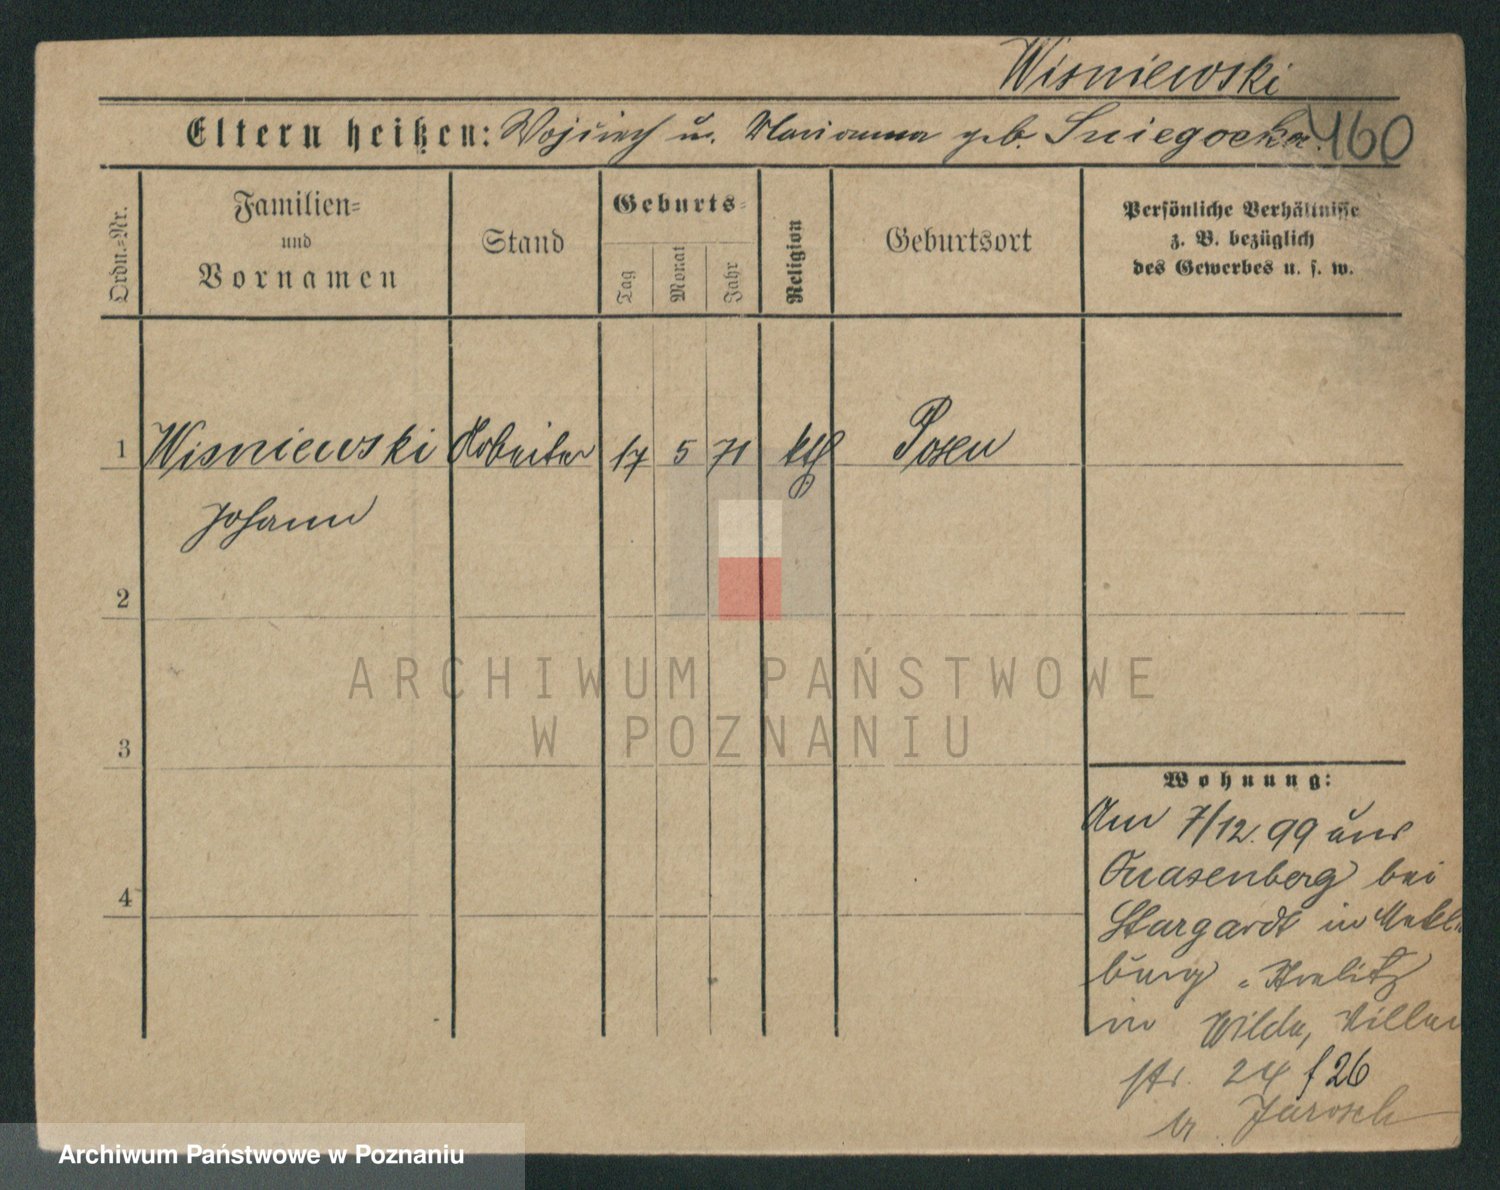 Wisniewski
Eltern heißen: Wojciech u. Marianna geb. Sniegocka. 460
Ordn.=Nr.
Familien=
und
Vornamen
Stand
Geburts=
Tag
Monat
Jahr
Religion
Geburtsort
Persönliche Verhältnisse
z. B. bezüglich
des Gewerbes u. s. w.
1 Wisniewski Arbeiter 17 5 71 kth Posen
Johann
2
3
4
Wohnung:
Am 7/12. 99 aus
Quasenberg bei
Stargardt in Mekl
burg = Strelitz
in Wilda, Villen
str. 24 f 26
br. Jarosch
ARCHIWUM PAŃSTWOWE
W POZNANIU
Archiwum Państwowe w Poznaniu